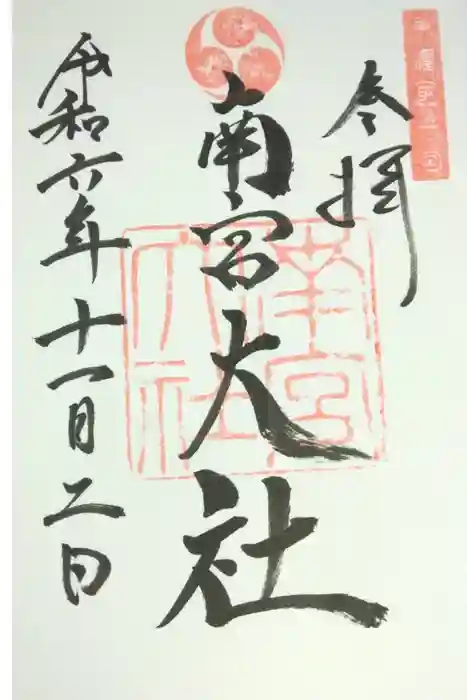 参拝
南宮大社
南宮
大社
令和六年十一月二日